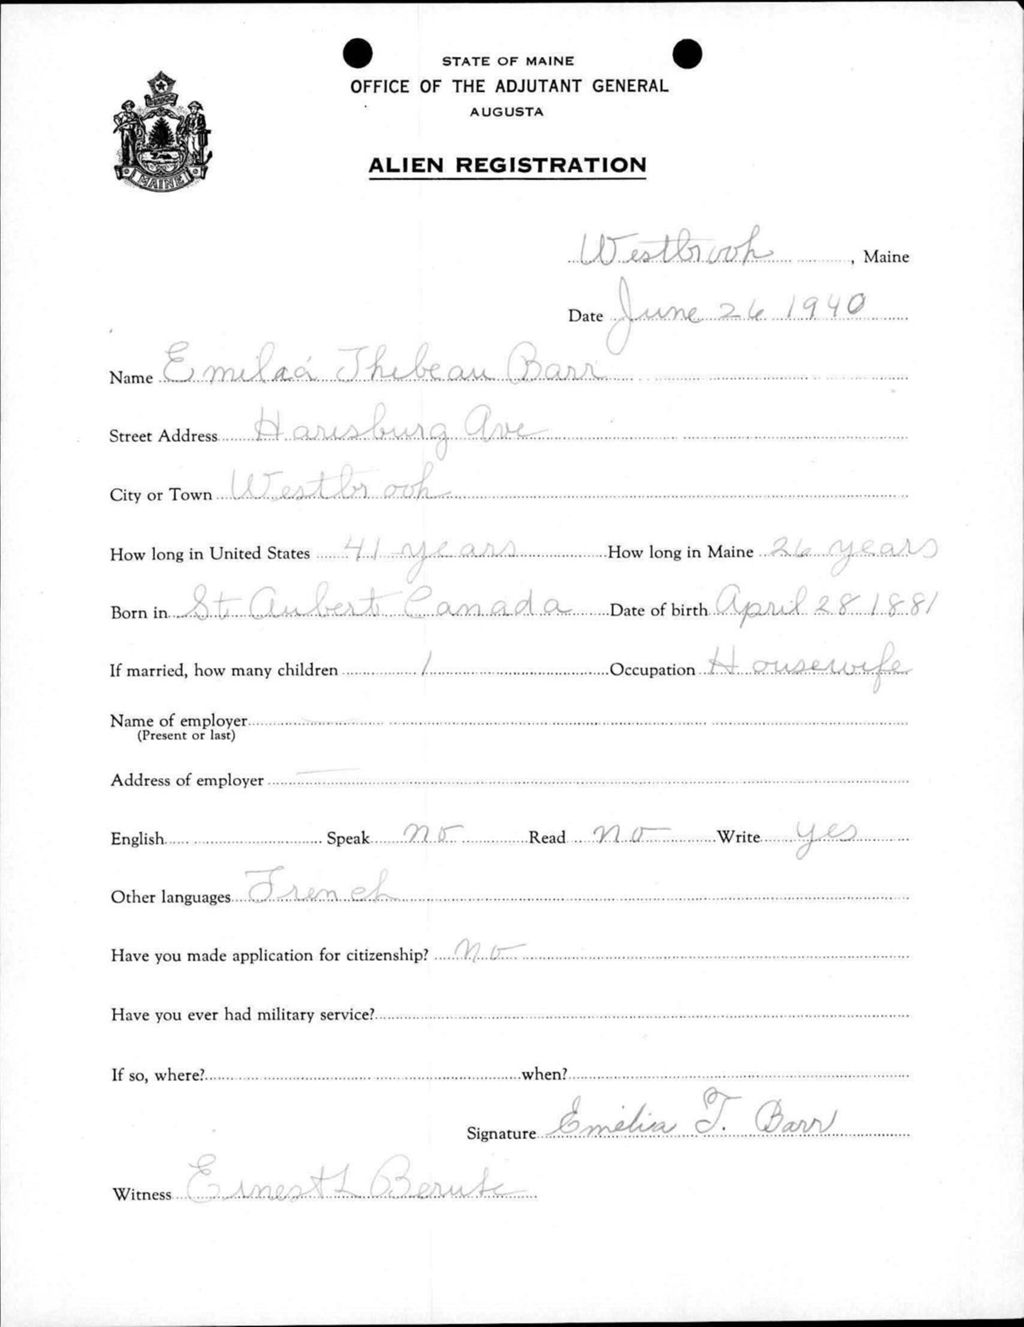 STATE OF MAINE
OFFICE OF THE ADJUTANT GENERAL
AUGUSTA
ALIEN REGISTRATION
MAINE
Westbrook, Maine
Date June 26 1940
Name Emilia Thebeau Barr
Street Address Harisburg Ave
City or Town Westbrook
How long in United States 41 years How long in Maine 26 years
Born in St Aubert Canada Date of birth April 28 1881
If married, how many children 1 Occupation Housewife
Name of employer
(Present or last)
Address of employer
English Speak no Read no Write yes
Other languages French
Have you made application for citizenship? no
Have you ever had military service?
If so, where? when?
Signature Emélia T. Barr
Witness Ernest L